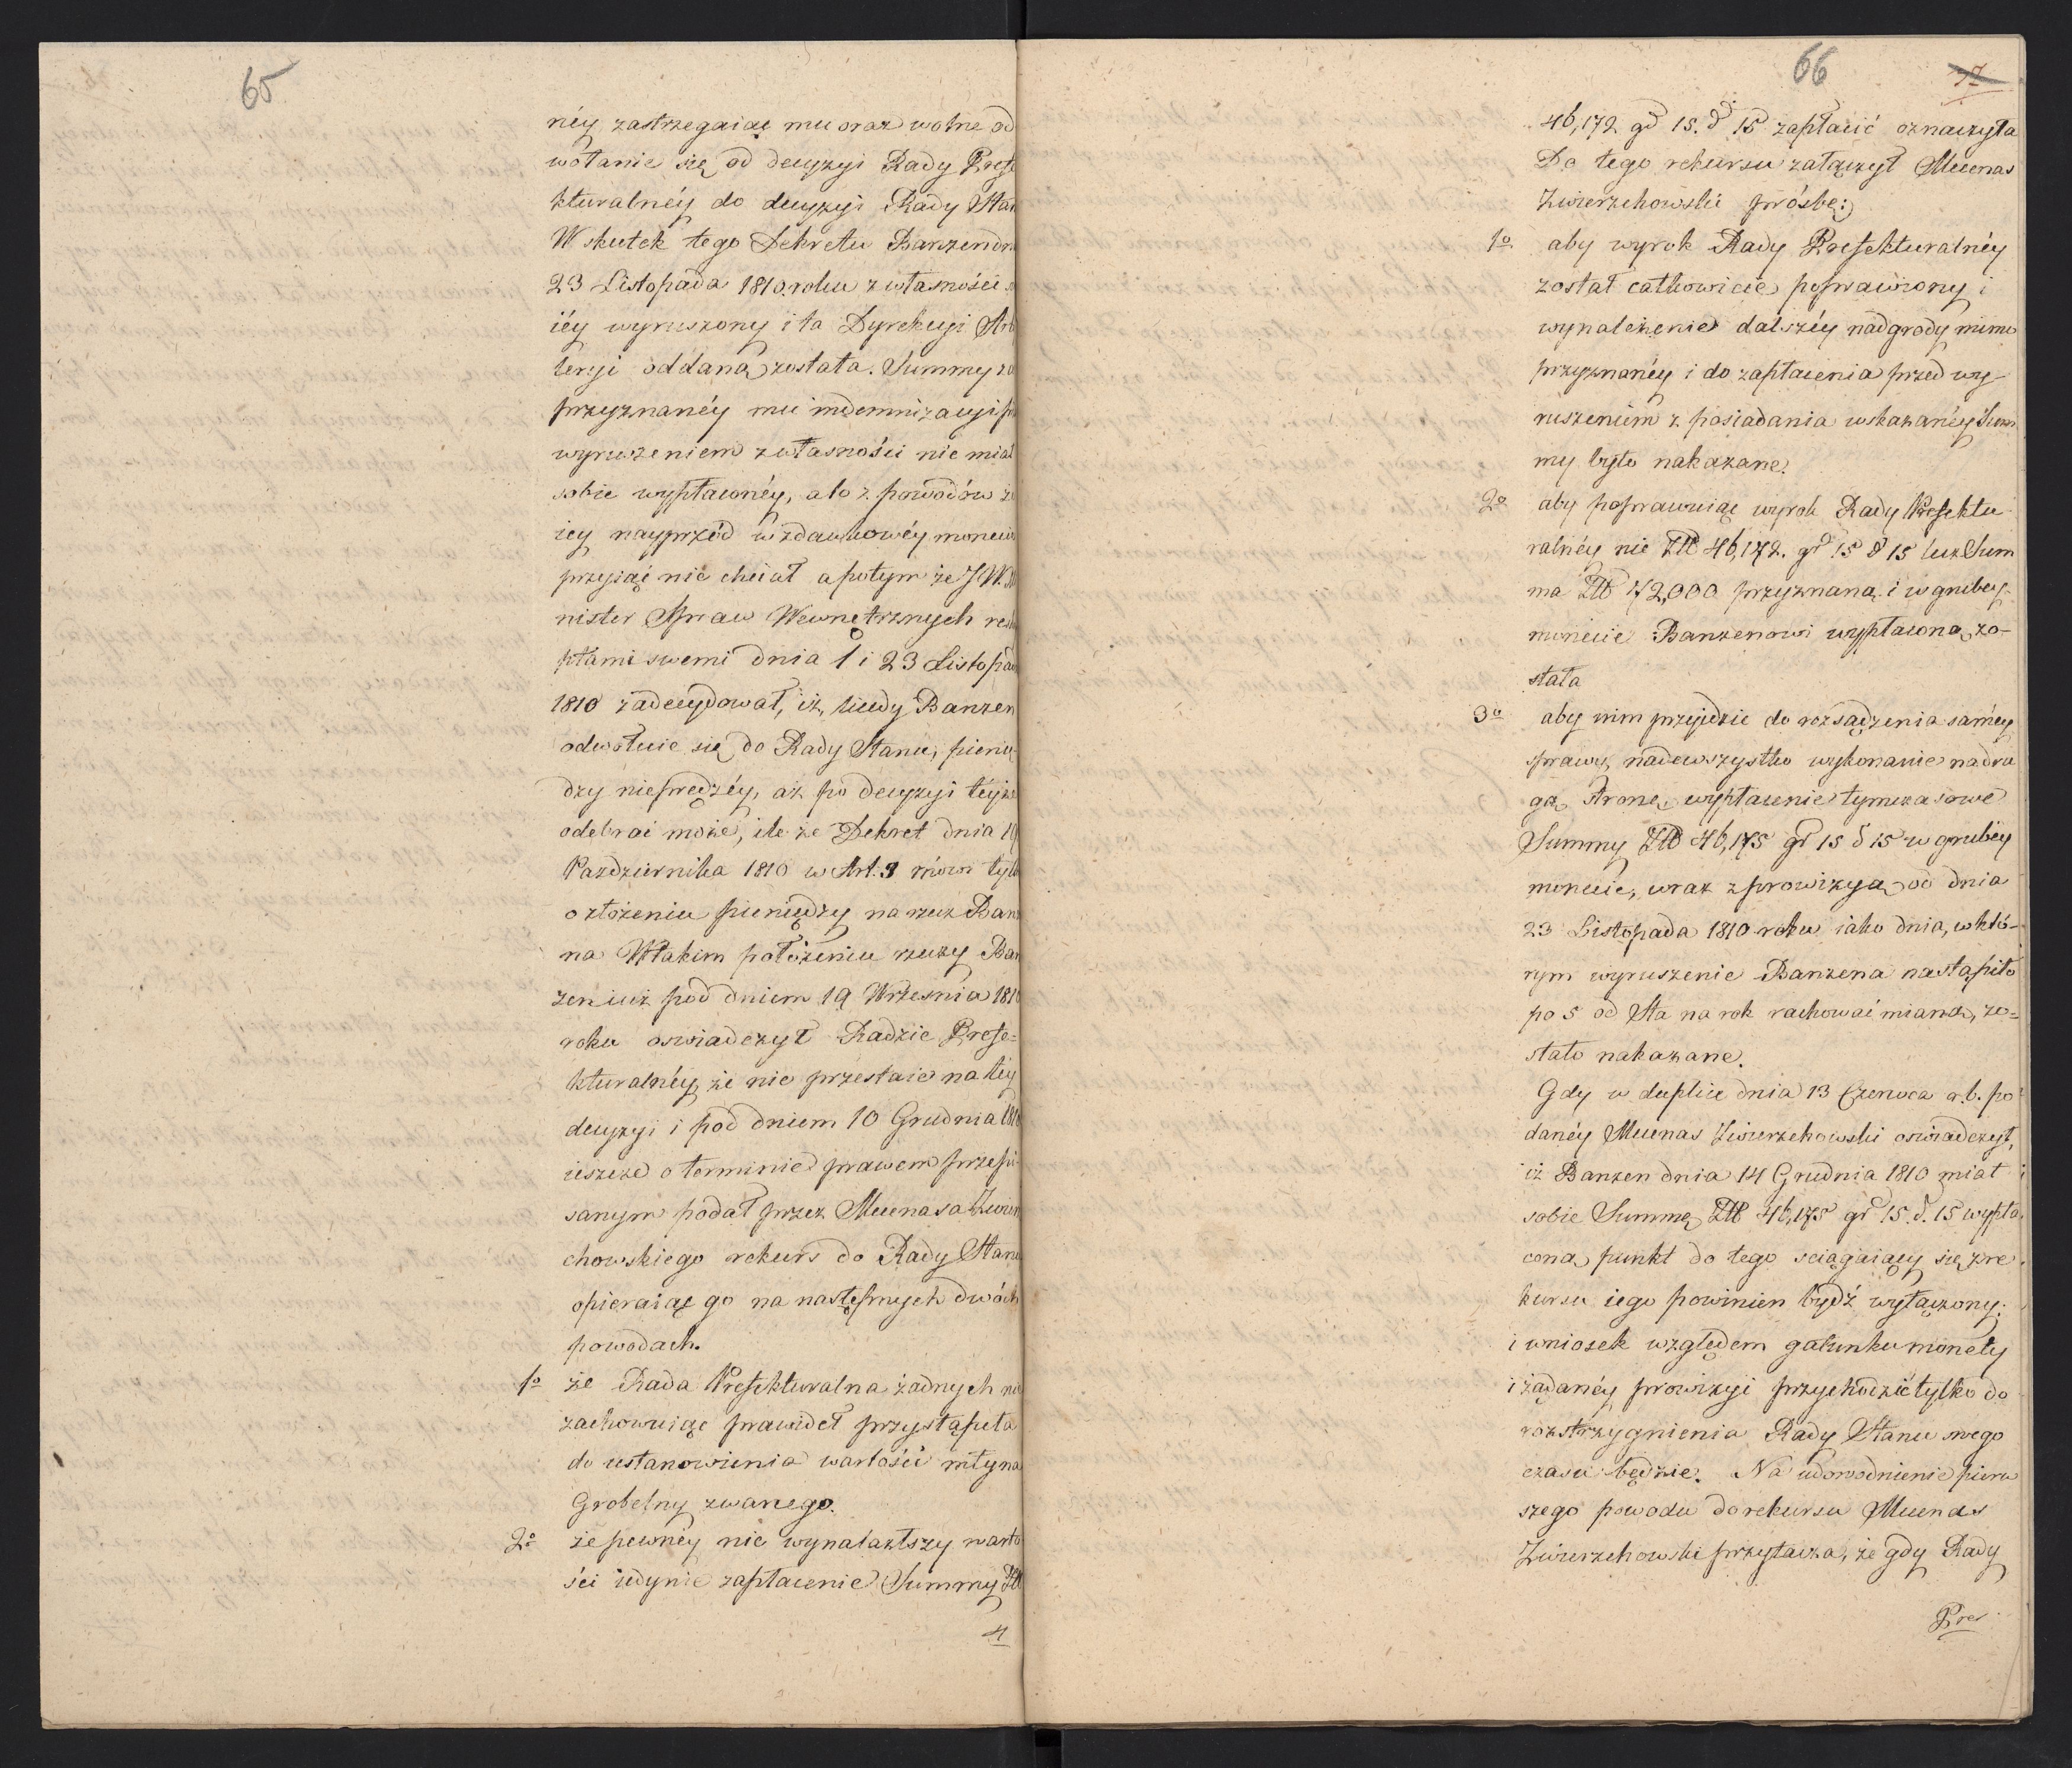 65
néy zastrzegaiąc mu oraz wolne od
wołanie się od decyzyi Rady Prefe
kturalnéy do decyzyi Rady Stan
W skutek tego Dekretu Banzen dn
23 Listopada 1810. roku z własności
iéy wyruszony i ta Dyrekcyi Art
leryi oddaną została. Summy za
przyznanéy mu indemnizacyi p
wyruszeniem z własności nie miał
sobie wypłaconéy, a to z powodów ż
iey nayprzód w zdawkowéy monecie
przyiąć nie chciał a potym że JW. Mi
nister Spraw Wewnętrznych res
ptami swemi dnia 1 i 23 Listopad
1810 zadecydował, iż, kiedy Banzen
odwołuie się do Rady Stanu, pienię
dzy nieprędzéy, aż po decyzyi téyże
odebrać może, ile że Dekret dnia 19
Pazdziernika 1810 w Art. 3 mówi tylk
o złożeniu pieniędzy na rzecz Banze
na W takim położeniu rzeczy Ban
zen iuż pod dniem 19 Wrzesnia 1810
roku oswiadczył Radzie Prefe=
kturalnéy, że nie przestaie na téy
decyzyi i pod dniem 10 Grudnia 1810
ieszcze o terminie prawem przepi
sanym podał przez Mecenasa Zwierz
chowskiego rekurs do Rady Stanu
opieraiąc go na następnych dwóch
powodach.
1o że Rada Prefekturalna żadnych nie
zachowuiąc prawideł przystąpiła
do ustanowienia wartości młyna
Grobelny zwanego.
2o że pewnéy nie wynalazłszy warto
ści iedynie zapłacenie Summy Złł
4
66 77
46,172 gr 15. d 15 zapłacić oznaczyła
Do tego rekursu załączył Mecenas
Zwierzchowski prośbę:
1o. aby wyrok Rady Prefekturalnéy
został całkowicie poprawiony i
wynalezienie dalszéy nadgrody mimo
przyznanéy i do zapłacenia przed wy-
ruszeniem z posiadania wskazanéy Sum
my było nakazane.
2o aby poprawuiąc wyrok Rady Prefektu
ralnéy nie Złł 46,172. gr 15 d 15 lecz Sum
ma Złł 72,000 przyznana i w grubey
monecie Banzenowi wypłacona zo-
stała
3o aby nim przyjdzie do rozsądzenia saméy
sprawy, nadewszystko wykonanie na dru
gą stronę, wypłacenie tymczasowe
Summy Złł 46,175 gr 15 d 15 w grubéy
monecie, wraz z prowizyą od dnia
23 Listopada 1810 roku iako dnia, w któ-
rym wyruszenie Banzena nastąpiło
po 5 od Sta na rok rachować mianą, zo=
stało nakazane.
Gdy w duplice dnia 13 Czerwca r. b. po
danéy Mecenas Zwierzchowski oswiadczył,
iż Banzen dnia 14 Grudnia 1810 miał
sobie Summę Złł 46,175 gr 15. d. 15 wypła
coną, punkt do tego sciągaiący się z re
kursu iego powinien bydź wyłączony.
i wniosek względem gatunku monety
i żądanéy prowizyi przychodzić tylko do
rozstrzygnienia Rady Stanu swego
czasu będzie. Na udowodnienie pierw
szego powodu do rekursu Mecenas
Zwierzchowski przytacza, że gdy Rady
Pre